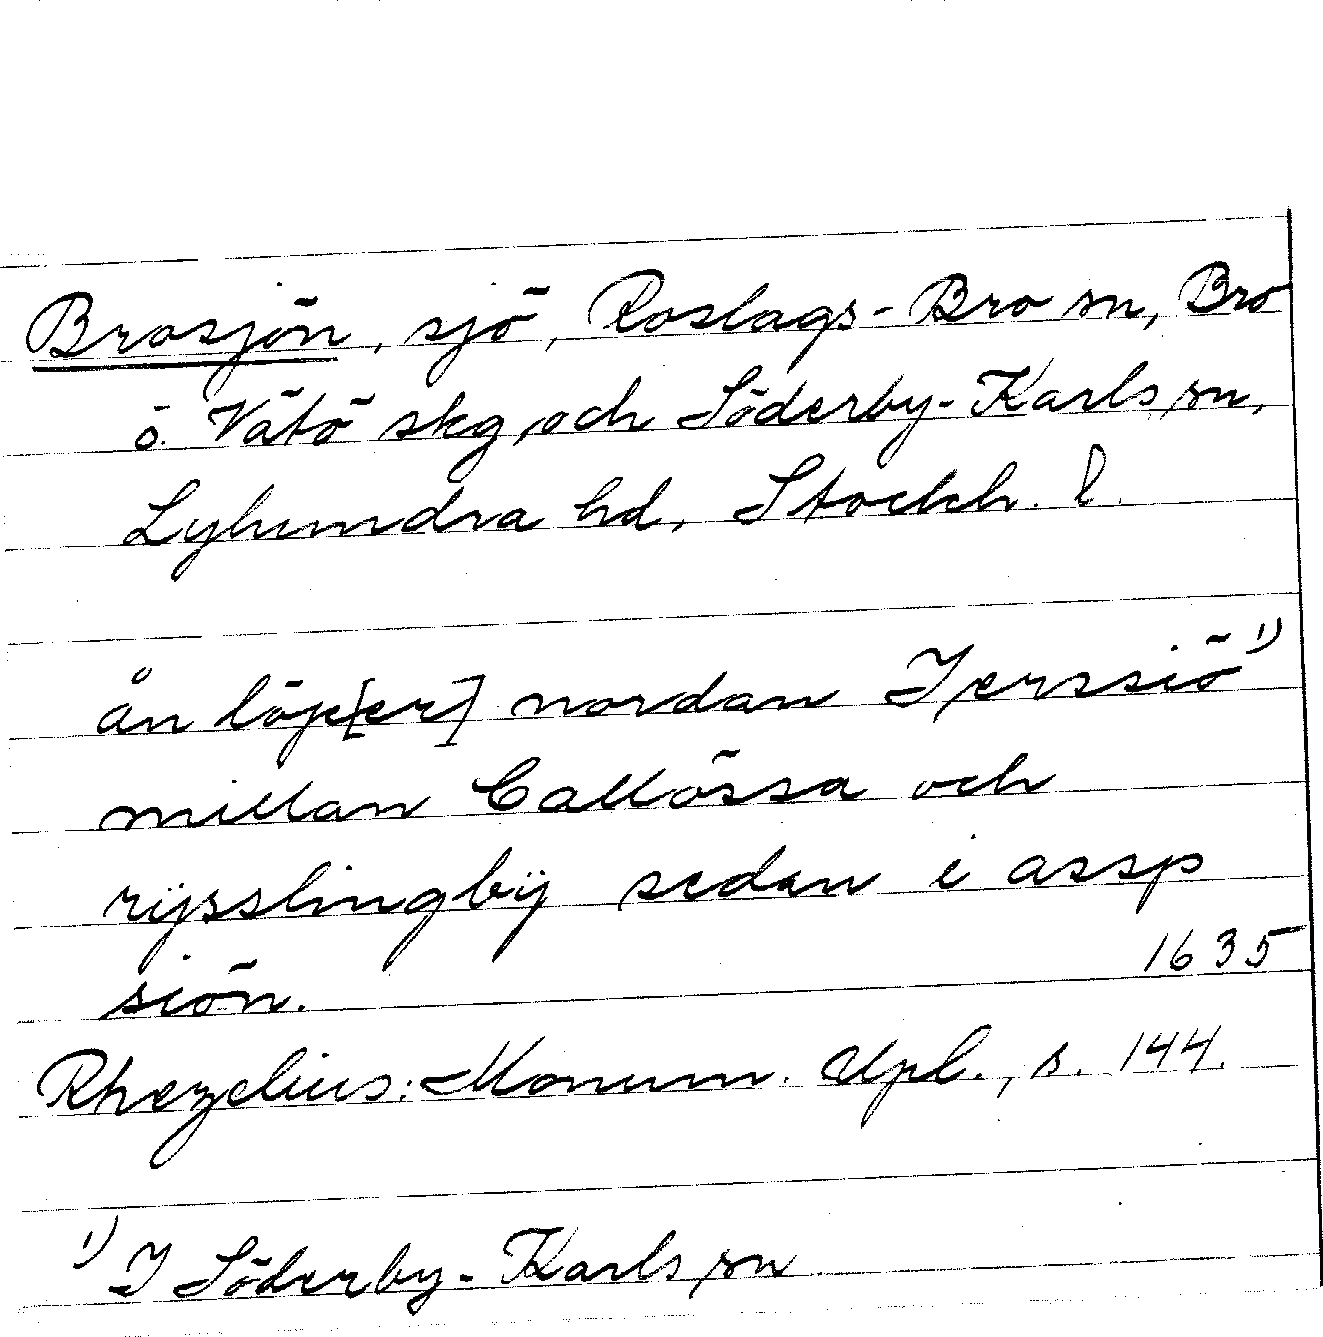 Brosjön, sjö, Roslags-Bro sn, Bro
o. Vätö skg, och Söderby-Karls sn,
Lyhundra hd, Stockh. l.
ån löp[er] nordan Jerssiö ¹)
millan Callössa och
rijsslingbÿ sedan i assp
siön. 1635
Rhezelius: Monum. Upl., s. 144.
¹) I Söderby-Karls sn